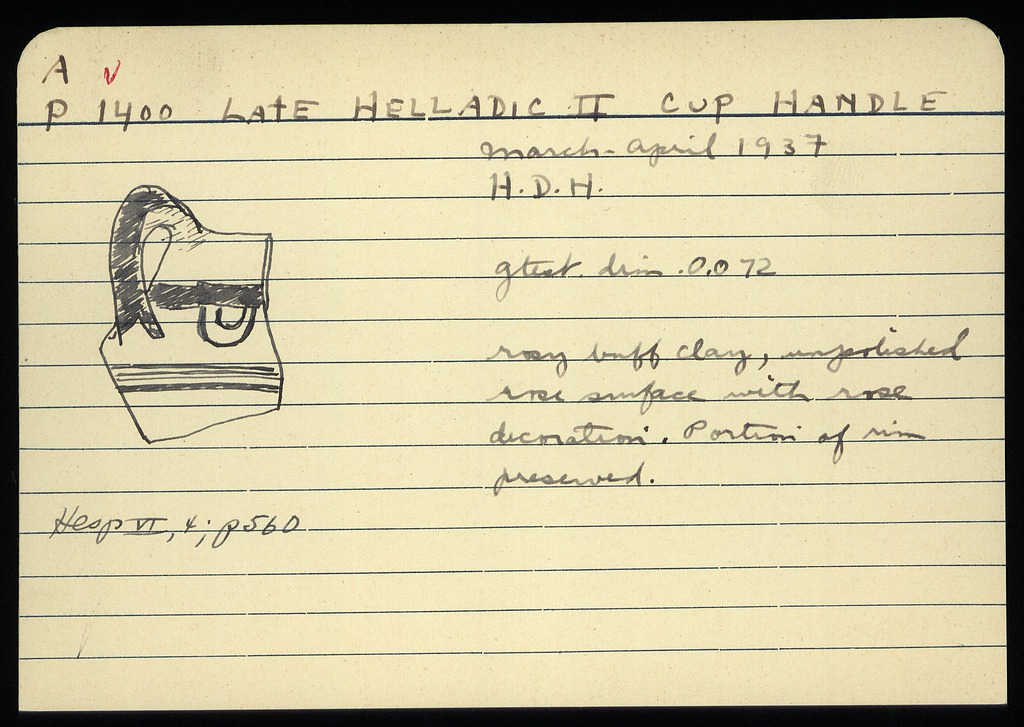 A ✓
P 1400 LATE HELLADIC II CUP HANDLE
March-April 1937
H.D.H.
gtest. dim. 0.072
rosy buff clay, unpolished
rose surface with rose
decoration. Portion of rim
preserved.
Hesp VI, 4; p560